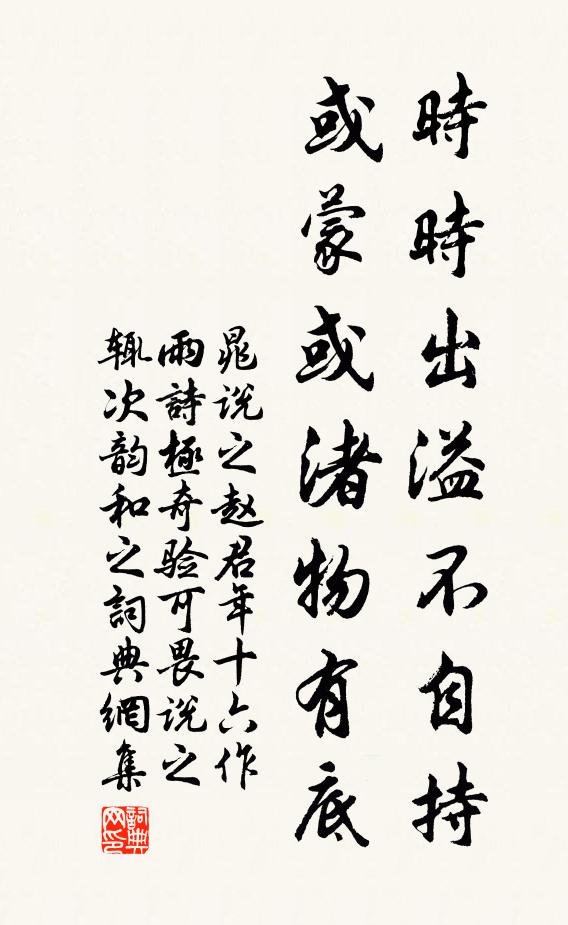 時時出溢不自持
或蒙或渚物有底
晁说之赵君年十六作
雨詩極奇验可畏说之
辄次韵和之詞典網集
詞典网印